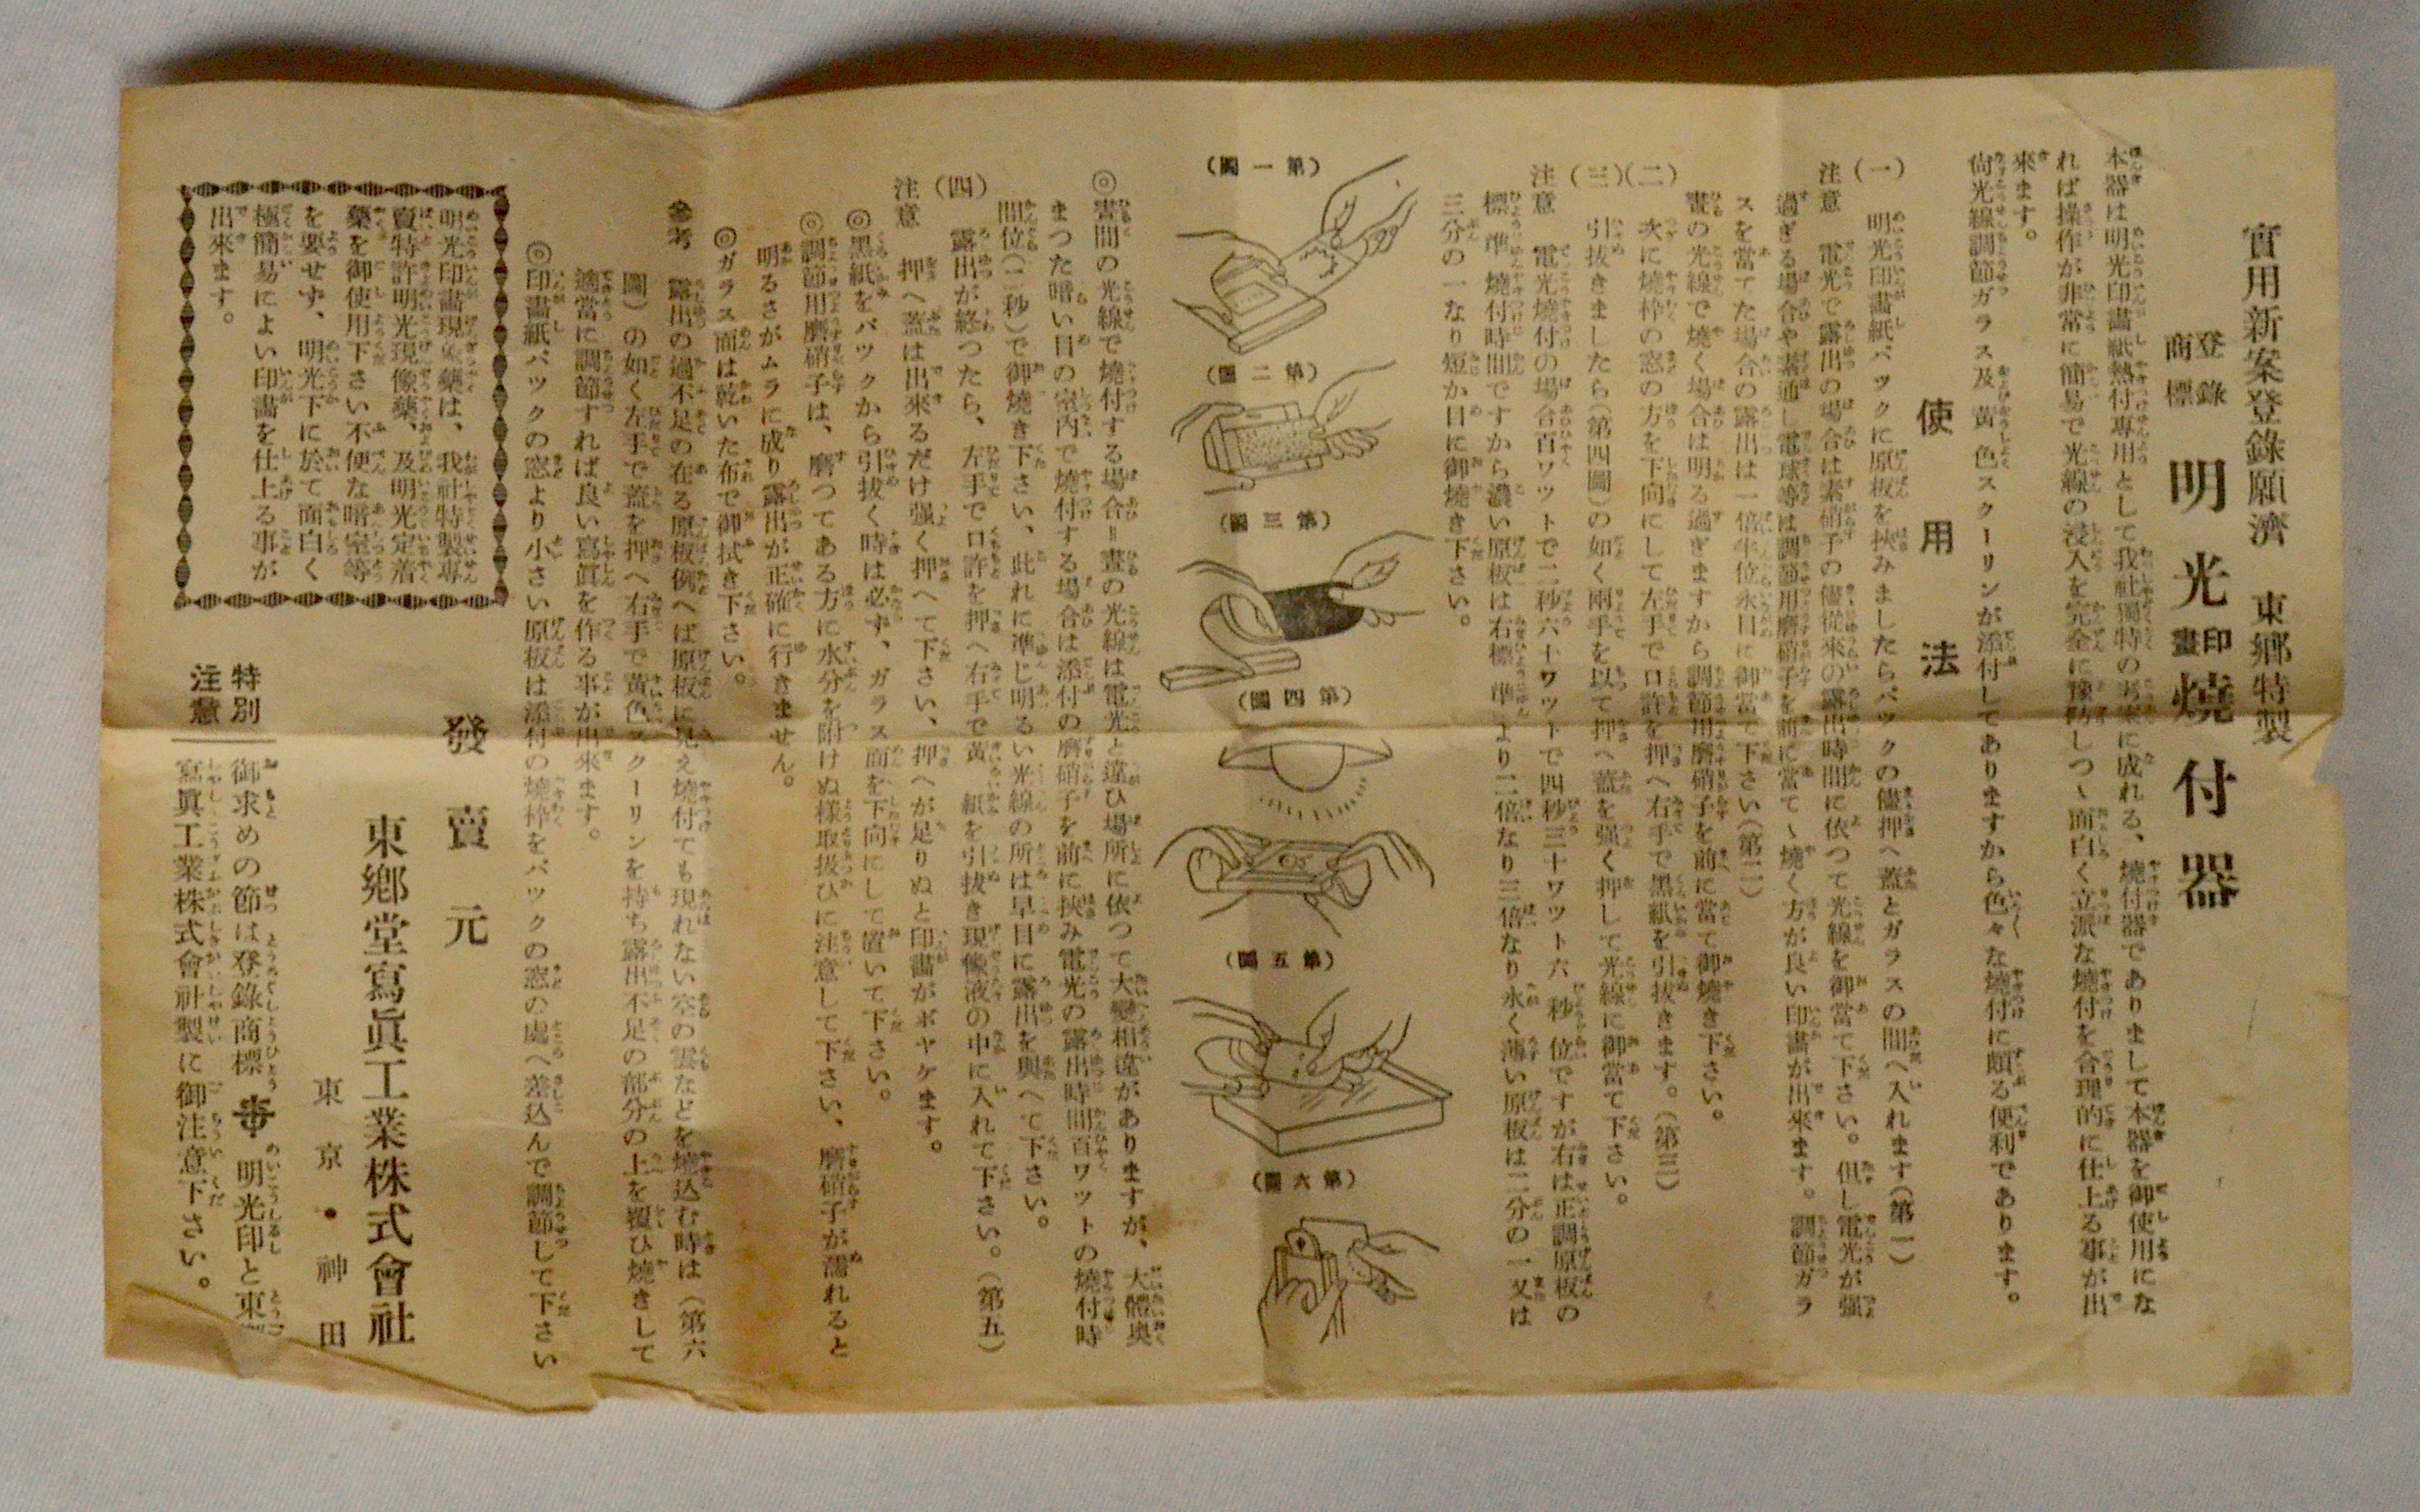 實用新案登錄願濟　東鄉特製
登錄商標　明光印畫燒付器
本器は明光印畫紙熱付專用として我社獨特の考案に成れる、燒付器でありまして本器を御使用にな
れば操作が非常に簡易で光線の浸入を完全に豫防しつゝ面白く立派な燒付を合理的に仕上る事が出
來ます。
尙光線調節ガラス及黃色スクーリンが添付してありますから色々な燒付に頗る便利であります。
使用法
(一)　明光印畫紙パックに原板を挾みましたらパックの儘押へ蓋とガラスの間へ入れます(第一)
注意　電光で露出の場合は素硝子の儘從來の露出時間に依つて光線を御當て下さい。但し電光が强
過ぎる場合や素通し電球等は調節用磨硝子を前に當てゝ燒く方が良い印畫が出來ます。調節ガラ
スを當てた場合の露出は一倍半位永目に御當て下さい(第二)
晝の光線で燒く場合は明る過ぎますから調節用磨硝子を前に當て御燒き下さい。
(二)　次に燒枠の窓の方を下向にして左手でロ許を押へ右手で黑紙を引拔きます。(第三)
(三)　引拔きましたら(第四圖)の如く兩手を以て押へ蓋を强く押して光線に御當て下さい。
注意　電光燒付の場合百ワットで二秒六十ワットで四秒三十ワット六秒位ですが右は正調原板の
標準燒付時間ですから濃い原板は右標準より二倍なり三倍なり永く薄い原板は二分の一又は
三分の一なり短か目に御燒き下さい。
(第一圖)
(第二圖)
(第三圖)
(第四圖)
(第五圖)
(第六圖)
◎晝間の光線で燒付する場合＝晝の光線は電光と違ひ場所に依つて大變相違がありますが、大體奥
まつた暗い日の室内で燒付する場合は添付の磨硝子を前に挾み電光の露出時間百ワットの燒付時
間位(二秒)で御燒き下さい、此れに準じ明るい光線の所は早目に露出を與へて下さい。
(四)　露出が終つたら、左手でロ許を押へ右手で黃紙を引拔き現像液の中に入れて下さい。(第五)
注意　押へ蓋は出來るだけ强く押へて下さい、押へが足りぬと印畫がボヤケます。
◎黑紙をパックから引拔く時は必ず、ガラス面を下向にして置いて下さい。
◎調節用磨硝子は、磨つてある方に水分を附けぬ樣取扱ひに注意して下さい、磨硝子が濡れると
明るさがムラに成り露出が正確に行きません。
◎ガラス面は乾いた布で御拭き下さい。
參考　露出の過不足の在る原板例へば原板に見え燒付ても現れない空の雲などを燒込む時は(第六
圖)の如く左手で蓋を押へ右手で黃色スクーリンを持ち露出不足の部分の上を覆ひ燒きして
適當に調節すれば良い寫眞を作る事が出來ます。
◎印畫紙パックの窓より小さい原板は添付の燒枠をパックの窓の處へ差込んで調節して下さい
發賣元
東鄉堂寫眞工業株式會社
東京・神田
明光印畫現像藥は、我社特製專
賣特許明光現像藥、及明光定着
藥を御使用下さい不便な暗室等
を要せず、明光下に於て面白く
極簡易によい印畫を仕上る事が
出來ます。
特別注意
御求めの節は登錄商標　明光印と東
寫眞工業株式會社製に御注意下さい。